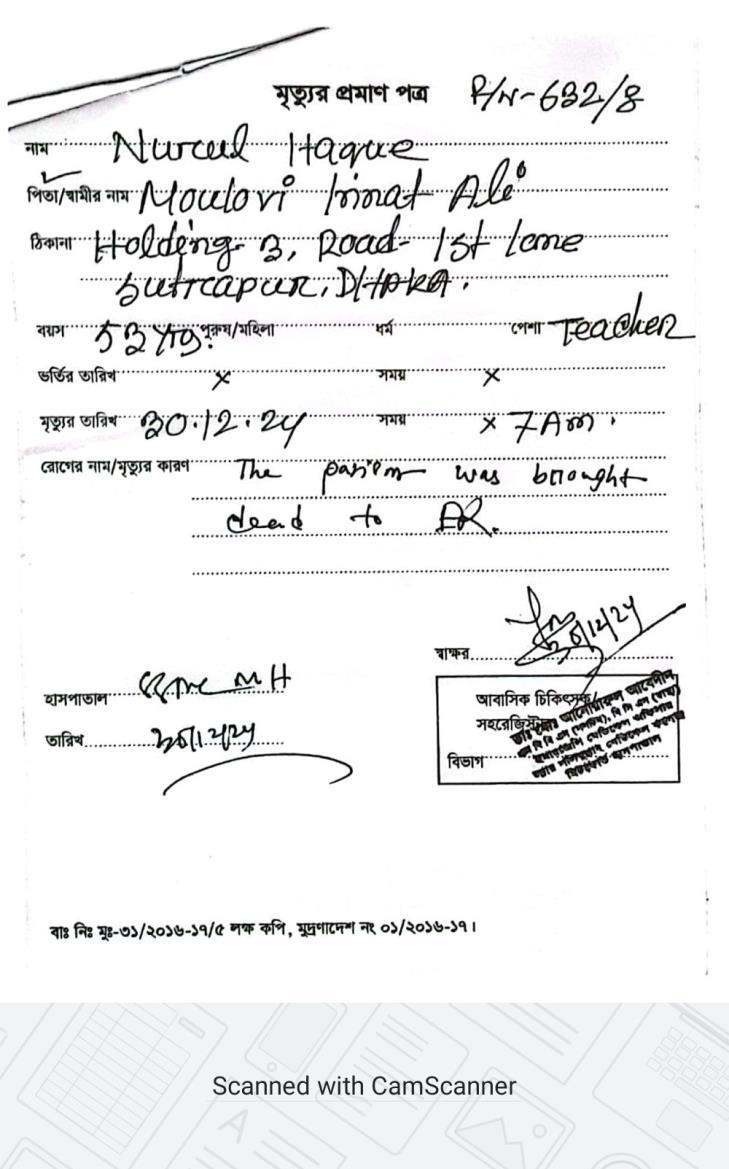 মৃত্যুর প্রমাণ পত্র P/N-632/8
নাম Nurul Haque
পিতা/স্বামীর নাম Moulovi Innat Ali
ঠিকানা Holding-3, Road-1st lane
Sutrapur, DHAKA.
বয়স 53 Yrs. পুরুষ/মহিলা ধর্ম পেশা Teacher
ভর্তির তারিখ x সময় x
মৃত্যুর তারিখ 30.12.24 সময় x 7 Am.
রোগের নাম/মৃত্যুর কারণ The patient was brought
dead to ER.
স্বাক্ষর
হাসপাতাল MH
আবাসিক চিকিৎসক/
তারিখ
বিভাগ
বাঃ নিঃ মুঃ-৩১/২০১৬-১৭/৫ লক্ষ কপি, মুদ্রণাদেশ নং ০১/২০১৬-১৭।
Scanned with CamScanner